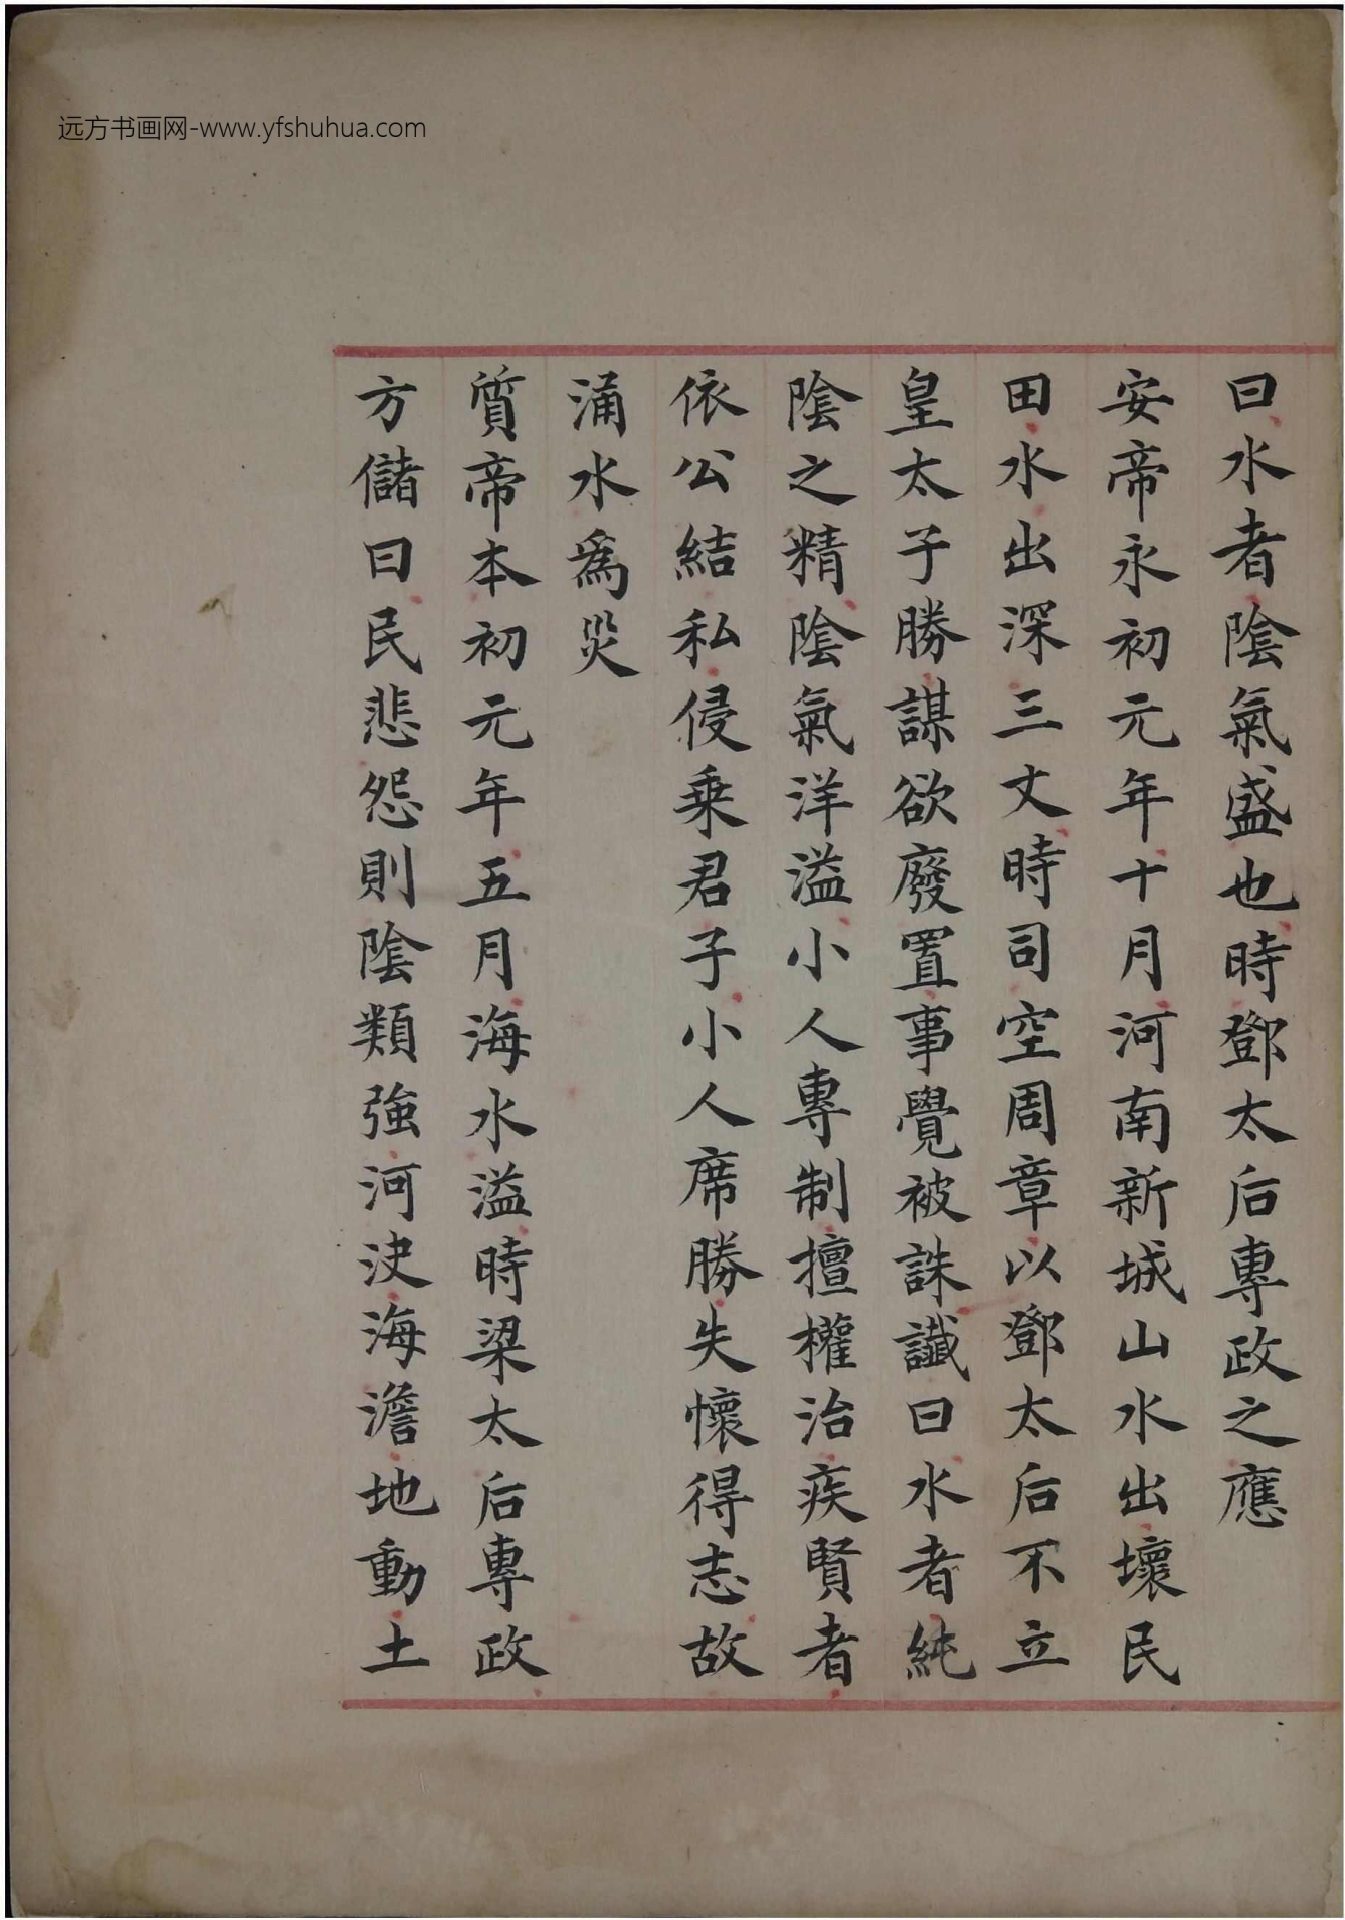 远方书画网-www.yfshuhua.com
曰水者陰氣盛也時鄧太后專政之應
安帝永初元年十月河南新城山水出壞民
田水出深三丈時司空周章以鄧太后不立
皇太子勝謀欲廢置事覺被誅讖曰水者純
陰之精陰氣洋溢小人專制擅權治疾賢者
依公結私侵乘君子小人席勝失懷得志故
涌水為災
質帝本初元年五月海水溢時梁太后專政
方儲曰民悲怨則陰類強河決海澹地動土